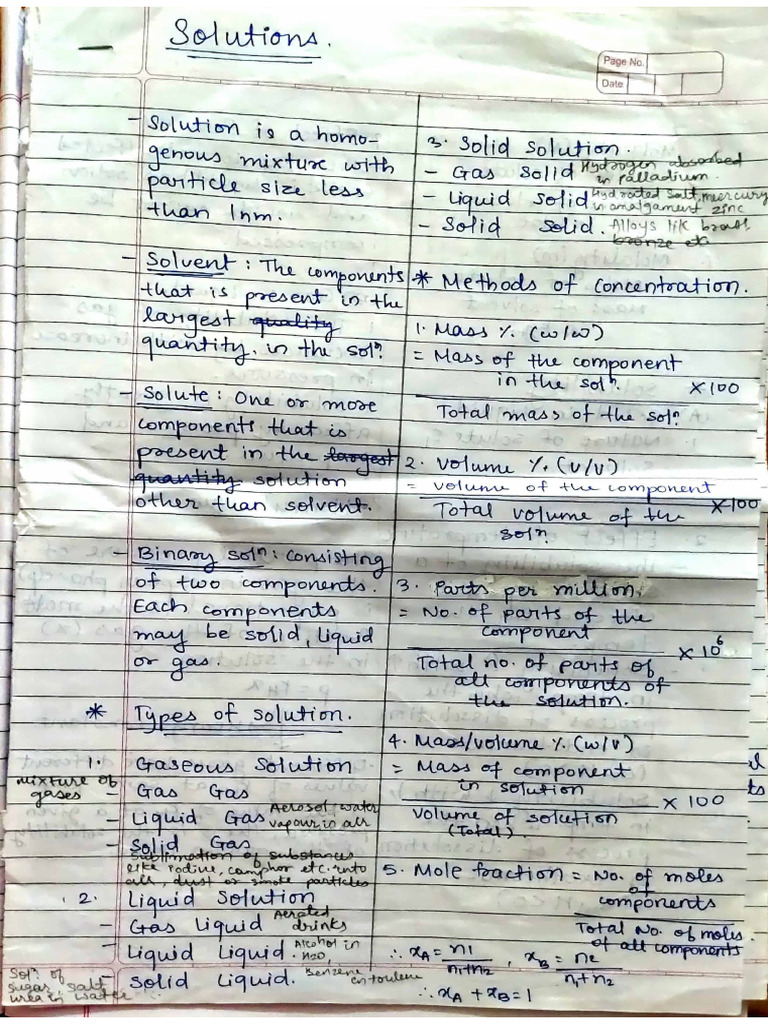 Solutions.
Page No.
Date
- Solution is a homo-
genous mixture with
particle size less
than 1nm.
- Solvent : The components
that is present in the
largest quality
quantity. in the solⁿ.
- Solute : One or more
components that is
present in the largest
quantity solution
other than solvent.
- Binary solⁿ : consisting
of two components.
Each components
may be solid, liquid
or gas.
* Types of solution.
1. Gaseous Solution
mixture of
gases
Gas Gas
- Liquid Gas Aerosol, water
vapour in air
- Solid Gas
Sublimation of substances
like iodine, camphor etc. into
air, dust or smoke particles
2. Liquid Solution
- Gas Liquid Aerated
drinks
- Liquid Liquid. Alcohol in
H2O,
Benzene in toulene
- Solid Liquid.
Solⁿ of
sugar, salt
urea in water
3. Solid Solution.
- Gas Solid Hydrogen absorbed
in palladium.
- Liquid Solid Hydrated Salt, mercury
in amalgament zinc
- Solid Solid. Alloys lik brass
bronze etc
* Methods of Concentration.
1. Mass %. (w/w)
= Mass of the component
in the solⁿ. × 100
Total mass of the solⁿ.
2. Volume %. (v/v)
= volume of the component × 100
Total volume of the
solⁿ.
3. Parts per million.
= No. of parts of the
component × 10⁶
Total no. of parts of
all components of
the solution.
4. Mass/volume %. (w/v)
= Mass of component
in solution × 100
volume of solution
(Total).
5. Mole fraction = No. of moles
of
components
Total No. of moles
of all components
∴ xA = n1 / n1+n2 , xB = n2 / n1+n2
∴ xA + xB = 1